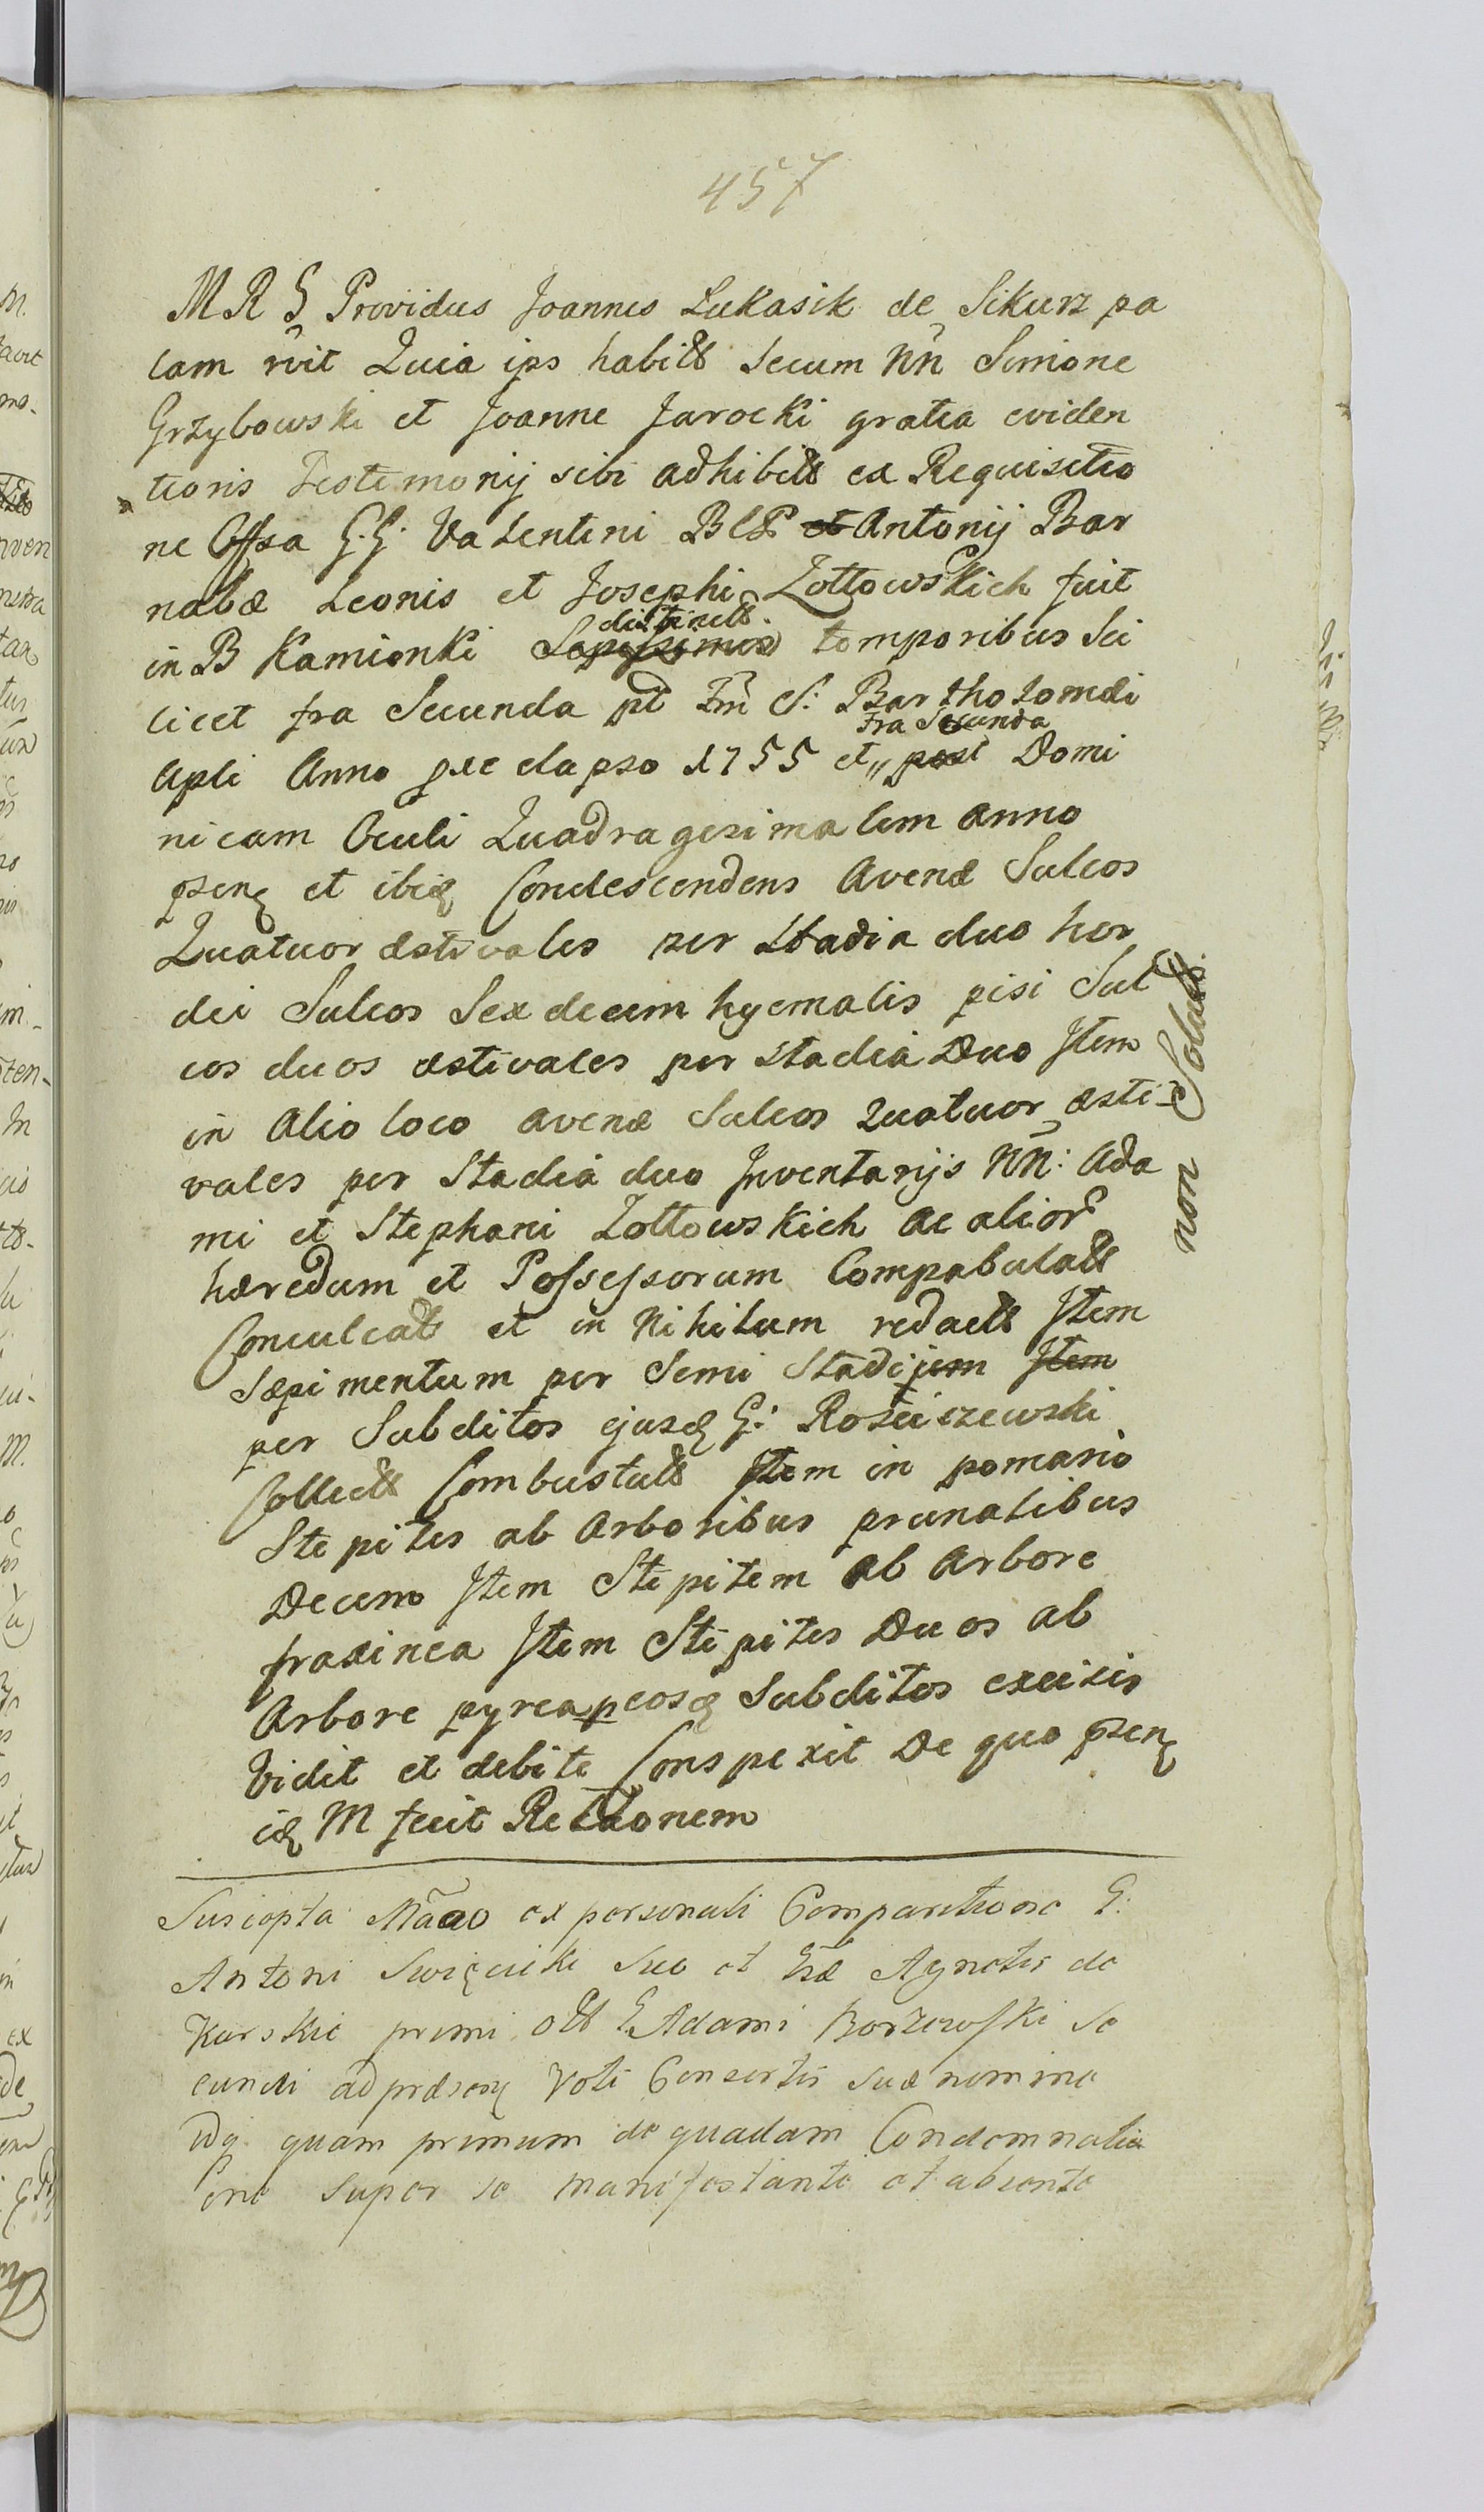 457
M R S Providus Joannes Lukasik de Sikurz pa
lam rvit Quia ips habitis secum NN Simone
Grzybowski et Joanne Jarocki gratia eviden
tioris Testimonij sibi adhibitis ex Requisitio
ne Offsa G.G. Valentini et Antonij Bar
nabæ Leonis et Josephi Zottowskich fuit
distinctis
in B Kamionki Sepissimis temporibus Sci
licet fra Secunda pt Fm S. Bartholomæi
fra Secunda
Apli Anno præelapso 1755 et,, post Domi
nicam Oculi Quadragesimalem anno
psenq et ibiq Condescendens Avenæ Sulcos
Quatuor æstivales per Stadia duo hor
dei Sulcos Sexdecem hyemalis pisi Sul
cos duos æstivales per stadia Duo Item
in Alio loco avenæ Sulcos Quatuor æsti-
vales per Stadia duo Inventarijs NN: Ada
mi et Stephani Zottowskich ac alior
hæredum et Possessorum Compabulatis
Conculcatis et in Nihilum redactis Item
Sæpimentum per Semi Stadijum Item
per Subditos ejusq G: Rosciszewski
Collectis Combustutis Item in pomario
Stepites ab Arboribus prunalibus
Decem Item Stepitem ab Arbore
fraxinea Item Stepites Duos ab
Arbore pyrea p eosq Subditos excisis
Vidit et debite Conspexit De quo psenq
iq M fecit Relãonem
non Soluti
Suscepta Mãao ex personali Comparitione G:
Antoni Swięcicki Suo et Gsæ Agnetis de
Karskie primi olt G. Adami Borzewski Se
cundi ad præsenq Voti Consortis suæ nomine
idq quam primum de quadam Condemnatio
one super se manifestante et absente